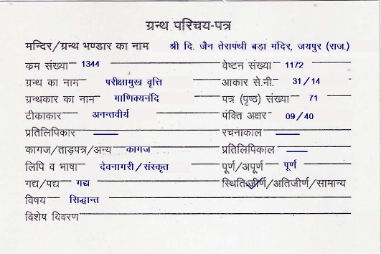 ग्रन्थ परिचय-पत्र
मन्दिर/ग्रन्थ भण्डार का नाम श्री दि. जैन तेरापंथी बड़ा मंदिर, जयपुर (राज.)
क्रम संख्या 1344 वेष्टन संख्या 1172
ग्रन्थ का नाम परीक्षामुख वृत्ति आकार से.मी. 31/14
ग्रन्थकार का नाम माणिक्यनंदि पत्र (पृष्ठ) संख्या 71
टीकाकार अनन्तवीर्य पंक्ति अक्षर 09/40
प्रतिलिपिकार — रचनाकाल —
कागज/ताड़पत्र/अन्य कागज प्रतिलिपिकाल —
लिपि व भाषा देवनागरी/संस्कृत पूर्ण/अपूर्ण पूर्ण
गद्य/पद्य गद्य स्थिति जीर्ण/अतिजीर्ण/सामान्य
विषय सिद्धान्त
विशेष विवरण